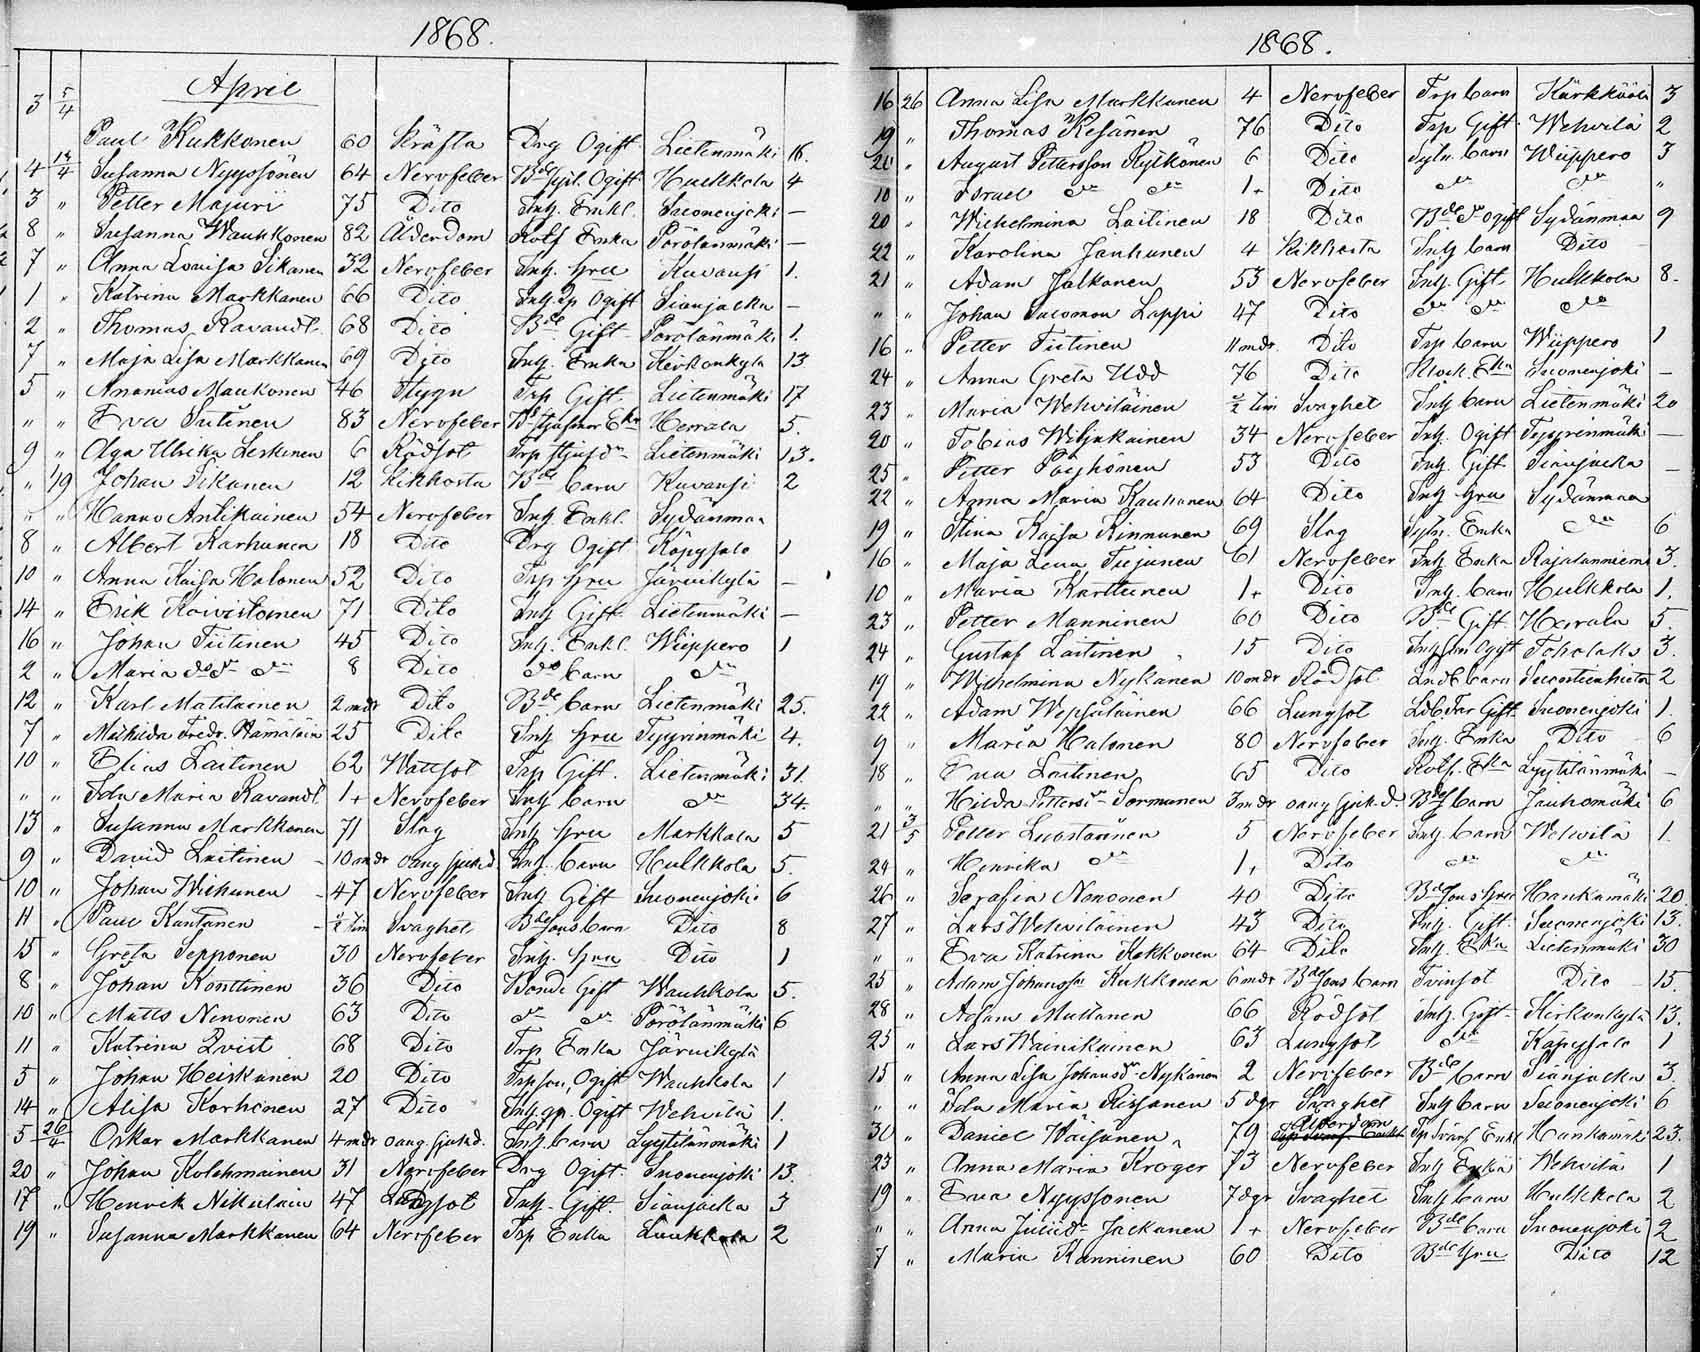 1868.
April
3 5/4 Paul Kukkonen 60 kräfta Drg Ogift Lietenmäki 16.
4 12/4 Susanna Nyyssönen 64 Nervfeber Huckkola 4
3 " Petter Majuri 75 Dito Inh. Enkl. Suonenjoki —
8 " Susanna Wauhkonen 82 Ålderdom Rotf Enka Pörölänmäki —
7 " Anna Lovisa Tikanen 32 Nervfeber Inh. hru Kuvansi 1.
1 " Katrina Markkanen 66 Dito Ogift Sianjacka —
2 " Thomas Ravandt. 68 Dito Bde Gift Pörölänmäki 1.
7 " Maja Lisa Markkanen 69 Dito Inh. Enka Kirkonkyla 13
5 " Ananias Maukonen 46 Stygn Trp Gift Lietenmäki 17
" " Eva Sutinen 83 Nervfeber Herrala 5.
9 " Olga Ulrika Leskinen 6 Rödsot Lietenmäki 13.
" 19 Johan Tikanen 12 kikhosta Bde barn Kuvansi 2
" " Hannu Antikainen 54 Nervfeber Inh. Enkl. Sydänmaa
8 " Albert Karhunen 18 Dito Drg Ogift Käpysalo 1
10 " Anna Kaisa Halonen 52 Dito Trp hru Järvikylä —
14 " Erik Koivistoinen 71 Dito Inh Gift Lietenmäki —
16 " Johan Tiitinen 45 Dito Inh. Enkl. Wiippero 1
2 " Maria do do do 8 Dito do barn do
12 " Karl Matilainen 2 mdr Dito Bde barn Lietenmäki 25.
7 " Mathilda Fredr. Hämäläin 25 Dito Inh hru Tyyrinmäki 4.
10 " Elias Laitinen 62 Wattsot Trp Gift. Lietenmäki 31.
" " Ida Maria Ravandt. 1 + Nervfeber Inh barn do 34.
13 " Susanna Markkanen 71 Slag Inh hru Markkala 5
9 " David Laitinen 10 mdr oang sjukd. Inh. barn Hulkkola 5.
10 " Johan Wichunen 47 Nervfeber Inh Gift Suonenjoki 6
11 " Paul Kantanen 1/2 Tim Svaghet Bde sons barn Dito 8
15 " Greta Sepponen 30 Nervfeber Inh. hru Dito 1
8 " Johan Konttinen 36 Dito Bonde Gift Wauhkola 5.
10 " Matts Ninonen 63 Dito do do Pörölänmäki 6
11 " Katrina Qvist 68 Dito Trp Enka Järvikylä
5 " Johan Heiskanen 20 Dito Trp son, Ogift Wauhkola 1
14 " Alisa Korhonen 27 Dito Inh. gp. Ogift Wehvilä 1.
5 26/4 Oskar Markkanen 4 mdr oang. sjukd. Inh. barn Lyytilänmäki 1
20 " Johan Kolehmainen 31 Nervfeber Drg Ogift. Suonenjoki 13.
17 " Henrik Nikulain 47 Lungsot Inh. Gift. Sianjacka 3
19 " Susanna Markkanen 64 Nervfeber Trp Enka Laukkala 2
1868.
16 26 Anna Lisa Markkanen 4 Nervfeber Trp barn Kärkkääl 3
19 " Thomas Resänen 76 Dito Trp Gift Wehvilä 2
20 " August Pettersson Rytkönen 6 Dito Sytn. barn Wiippero 3
10 " Israel do do 1 + Dito do do "
20 " Wilhelmina Laitinen 18 Dito Bde dr Ogift Sydänmaa 9
22 " Karolina Janhunen 4 Kikhosta Inh barn Dito
21 " Adam Jalkanen 53 Nervfeber Inh. Gift Hulkkola 8.
" " Johan Salomon Lappi 47 Dito do do do
16 " Petter Tiitinen 11 mdr Dito Trp barn Wiippero 1
24 " Anna Greta Udd 76 Dito Klock. Eka Suonenjoki —
23 " Maria Wehviläinen 1/2 tim Svaghet Inh barn Lietenmäki 20
20 " Tobias Wiljakainen 34 Nervfeber Inh. Ogift Tyyrinmäki —
25 " Petter Pöyhönen 53 Dito Inh. Gift Sianjacka —
22 " Anna Maria Kauhanen 64 Dito Inh hru Sydänmaa
19 " Stina Kajsa Kinnunen 69 Slag Sytn. Enka do 6
16 " Maja Lena Tiejunen 61 Nervfeber Inh Enka Rajalanniemi 3.
10 " Maria Karttunen 1 + Dito Inh. barn Hulkkola 1.
23 " Petter Manninen 60 Dito Bde Gift Herrala 5.
24 " Gustaf Laitinen 15 Dito Inh son Ogift Toholaks 3.
19 " Wilhelmina Nykänen 10 mdr Rödsot Indb barn 2
22 " Adam Wepsäläinen 66 Lungsot Gift. Suonenjoki 1.
9 " Maria Halonen 80 Nervfeber Inh. Enka Dito 6
18 " Eva Laitinen 65 Dito Rotf. Eka Lyytilänmäki —
" " Hilda Pettersdr Sormunen 3 mdr oang sjukd. Bde barn Jauhomäki 6
21 3/5 Petter Luostarinen 5 Nervfeber Inh. barn Wehvilä 1.
24 " Henrika do 1 + Dito do do
26 " Serafia Nenonen 40 Dito Bde sons hru Haukamäki 20.
27 " Lars Wehviläinen 43 Dito Inh. Gift. Suonenjoki 13.
" " Eva Katrina Kokkonen 64 Dito Inh. Eka Lietenmäki 30
25 " Adam Johansson Kukkonen 6 mdr Bde sons barn Tvinsot Dito 15.
28 " Adam Muttanen 66 Rödsot Inh. Gift Kirkonkylä 13.
25 " Lars Wainikainen 63 Lungsot do Käpysalo 1
15 " Anna Lisa Johansdr Nykänen 2 Nervfeber Bde barn Sianjacka 3.
" " Ida Maria Rissanen 5 dgr Svaghet Inh barn Suonenjoki 6
30 " Daniel Wäisänen 79 Ålderdom Enkl Haukamäki 23.
23 " Anna Maria Kroger 73 Nervfeber Inh Enka Wehvilä 1
19 " Eva Nyyssönen 7 dgr Svaghet Inh barn Hulkkola 2
" " Anna Juliidr Jäckanen 1 + Nervfeber Bde barn Suonenjoki 2
7 " Maria Kanninen 60 Dito Bde hru Dito 12